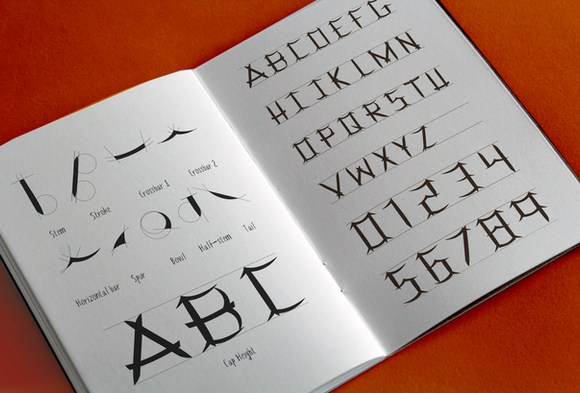 Stem Stroke Crossbar 1 Crossbar 2
Horizontal bar Spur Bowl Half-stem Tail
ABC
Cap Height
ABCDEFG
HIJKLMN
OPQRSTU
VWXYZ
01234
56789